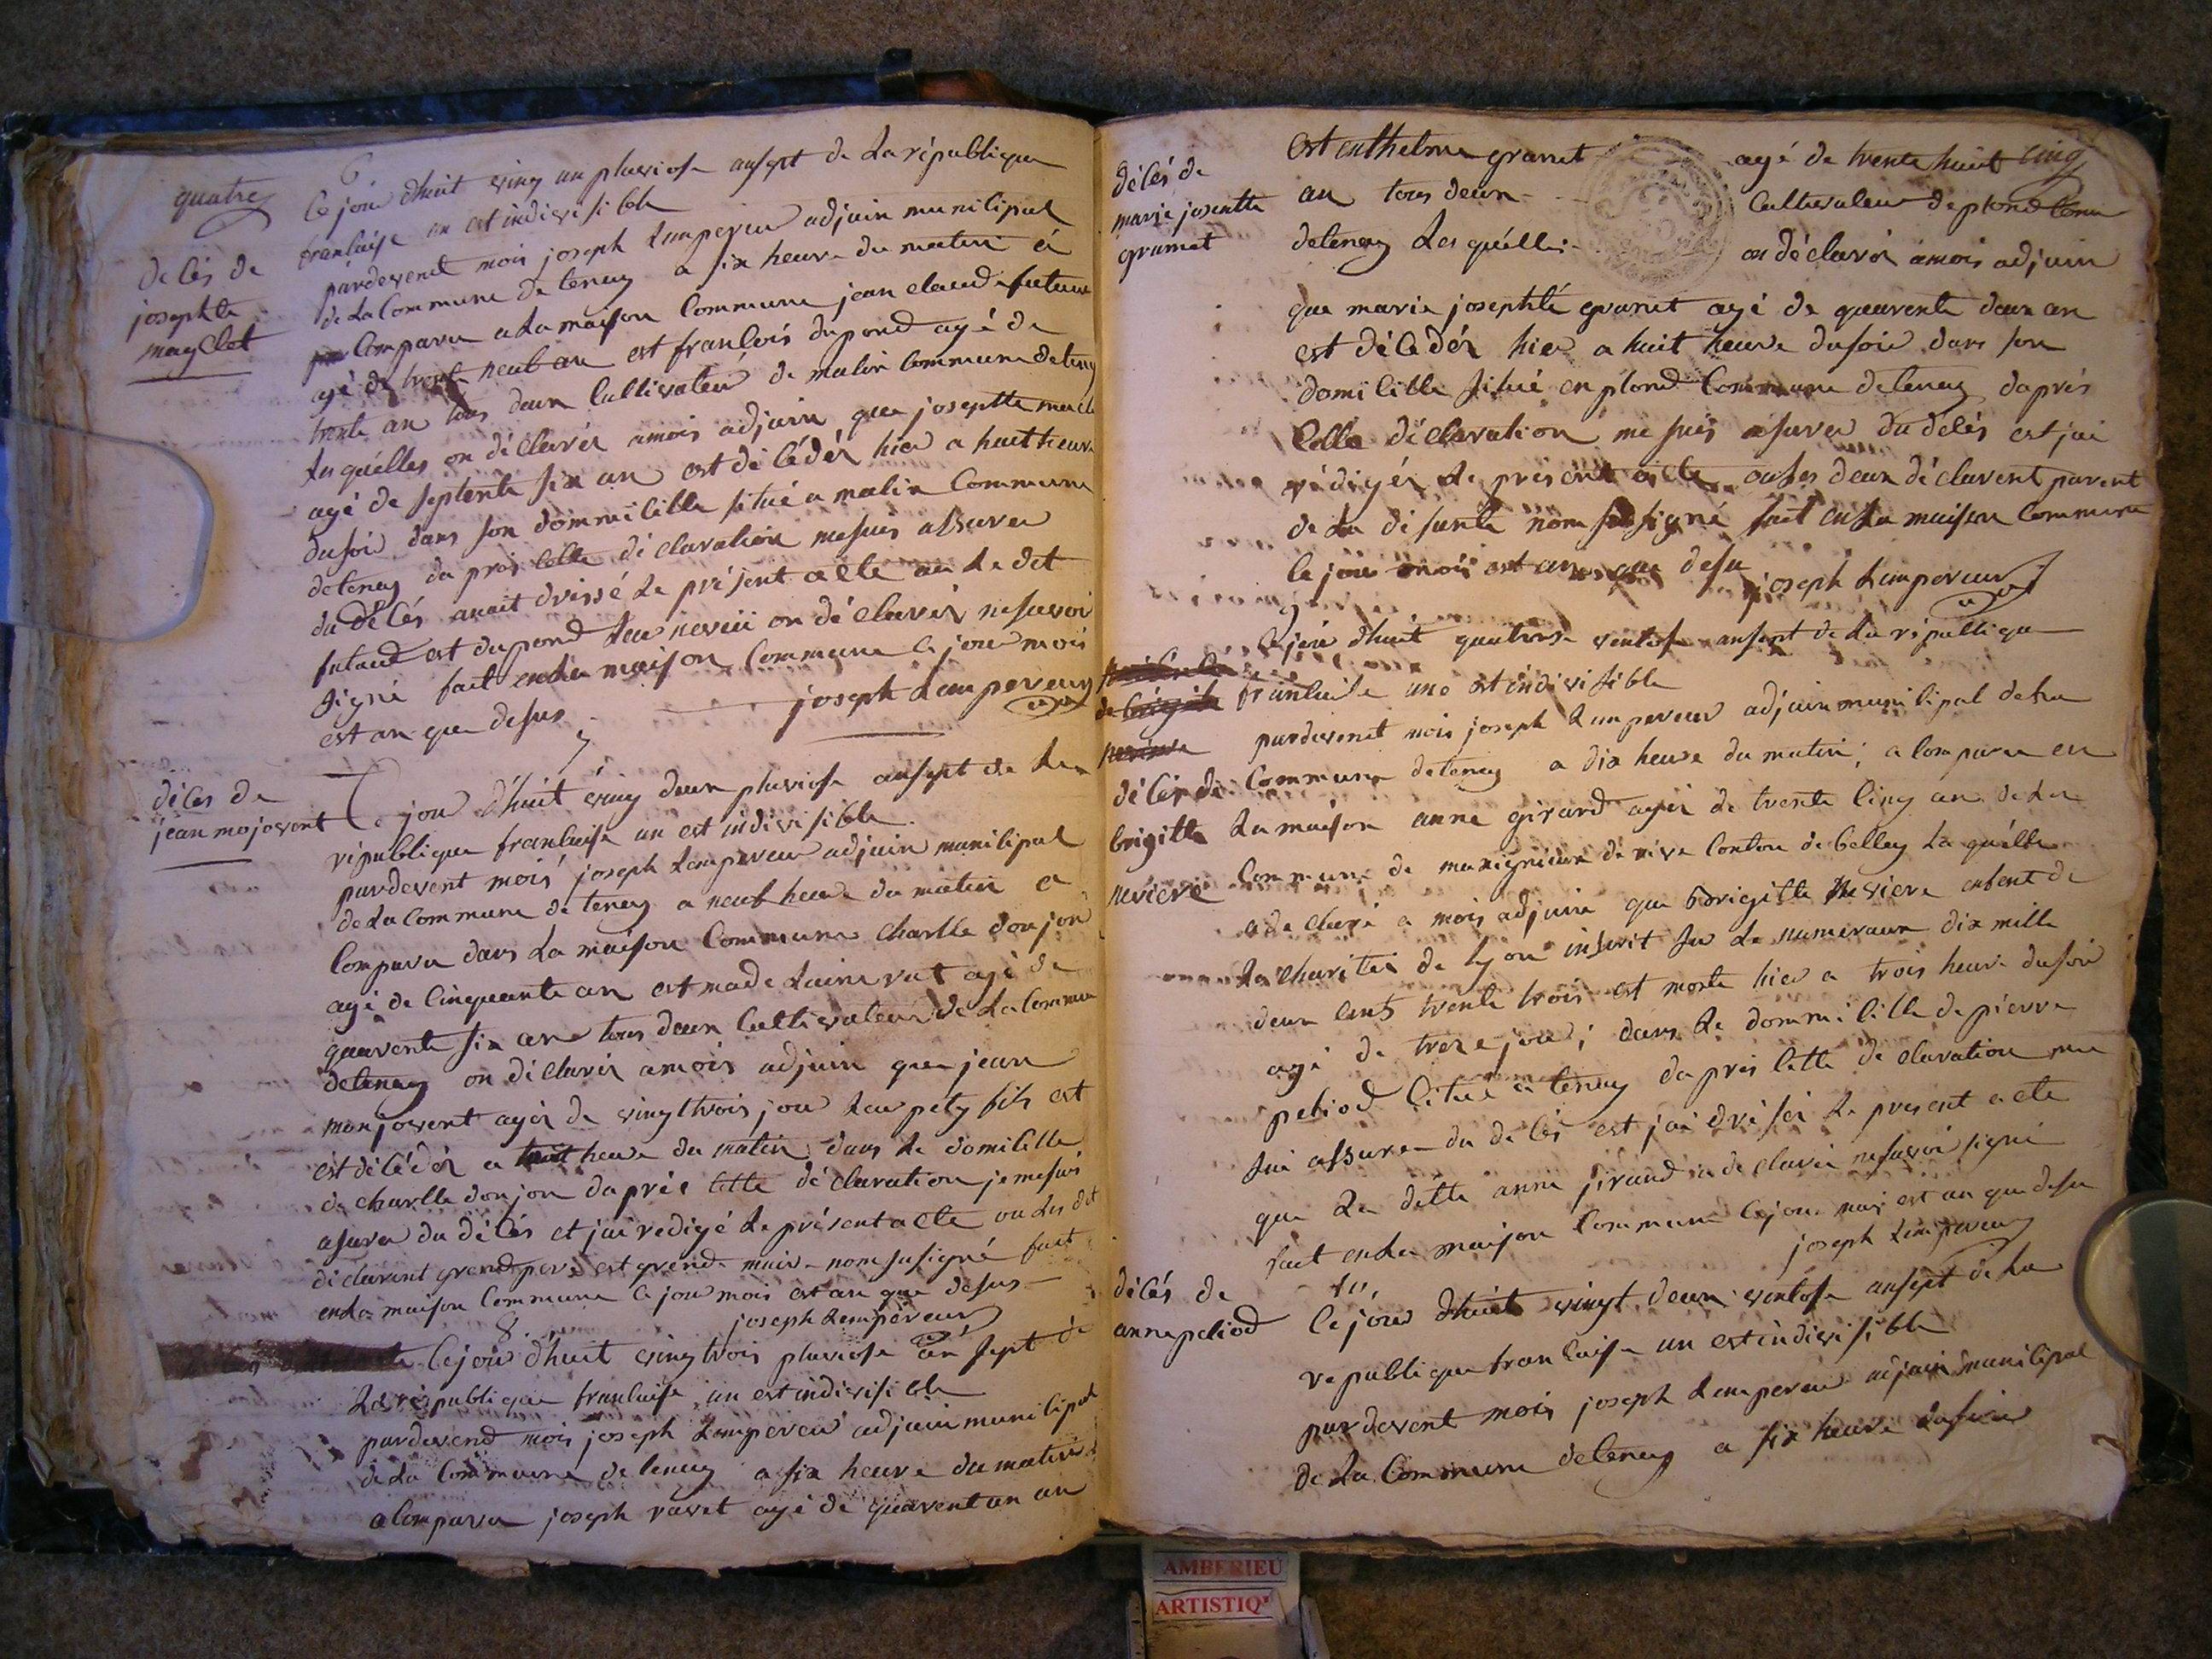 quatre
6
Ce jour dhuit ving un pluviose ansept de La république
franlaise un est indivisible
pardevent mois joseph Lampereur adjuin munilipal
de La Commune de tenay a six heure du matin à
Comparu a La maison Commune jean claude futaud
agé de trente neuf an est franlois dupond agé de
trente an tous deux Cultivateur de malix Commune de tenay
Lesquélles on déclarér amois adjuin que josephte mayclet
agé de septente six an est délédér hier a huit heure
dusoir dans son dommilille situé a malix Commune
detenay da prés Celle déclaration mesuis assurer
du délés anait drissé Le présent acte an Le dit
futaud est dupond Leur neveu on déclarér nesavoir
signé fait enla maison Commune Ce jour mois
est an que desus
joseph Lampereur
délés de
josephte
mayclet
7
délés de
jean mojovent
Ce jour d'huit ving deux pluviose ansept de La
république franlaise un est indivisible
pardevent mois joseph Lampereur adjuin munilipal
de La Commune de tenay a neuf heure du matin a
Comparu dans La maison Commune charlle donjon
agé de Cinquante an est madelaine rat agé de
quarente six an tous deux Cultivateur de La Commune
detenay on déclarér amois adjuin que jean
monjovent agér de vingtrois jour Leur pety fils est
est délédér a huit heure du matin dans Le domilille
de charlle donjon daprés Cette déclaration je mesuis
asurer du délés et jai redigé Le présent acte ou Les dit
diclarent grend pere est grende maire nom susigné fait
enLa maison Commune Ce jour mois est an que desus
joseph Lampereur
8
Lejour d'huit ving trois pluviose an sept de
La république franlaise un est indivisible
pardevend mois joseph Lampereur adjuin munilipal
de La Commune de tenay a six heure du matin
a Comparu joseph ravet agé de quarent un an
délés de
marie josentte
gramet
est anthelme gramet agé de trente huit cinq
an tous deux Cultivateur de plond Comu
detenay Lesquélles on déclarér amois adjuin
que marie josephté gramet agé de quarente deux an
est délédér hier a huit heure dusoir dans son
domilille situé en plond Commune detenay daprés
Celle déclaration me suis asurer du délés est jai
rédigér Le présent acte ou les deux déclarent parent
de La disunte nom susigné fait enLa maison Commune
le jour mois est an que desu
joseph Lampereur
9
Ce jour dhuit quatorse ventose ansept de La républiqu
franlaise une est indivisible
pardevenet mois joseph Lampereur adjuin munilipal deLa
Commune detenay a dix heure du matin; a Comparu en
La maison anne girard agér de trente Cinq an de La
Commune de marignieux de rive Conton de belley La quélle
a declaré a mois adjuin que Brigitte neviere enfent de
La charitée de Lyon inscrit su Le numeraux dix mille
deux cents trente trois est morte hier a trois heure dusoir
agé de treze jour; dans Le dommilille de pierre
peliod Citué a tenay da prés Cette declaration me
sui assurer du delés est jai drésér Le present acte
que La ditte anne jirand a declarér nesavoir signé
fait enLa maison Commune Ce jour mois est an que desu
joseph Lampereur
délés de
brigitte
neviere
10
délés de
anne peliod
Ce jour dhuit vingt deux ventose ansept de La
republique franlaise un est indivisible
pardevent mois joseph Lampereur adjuin munilipal
de La Commune detenay a six heure dusoir
AMBERIEU
ARTISTIQ'